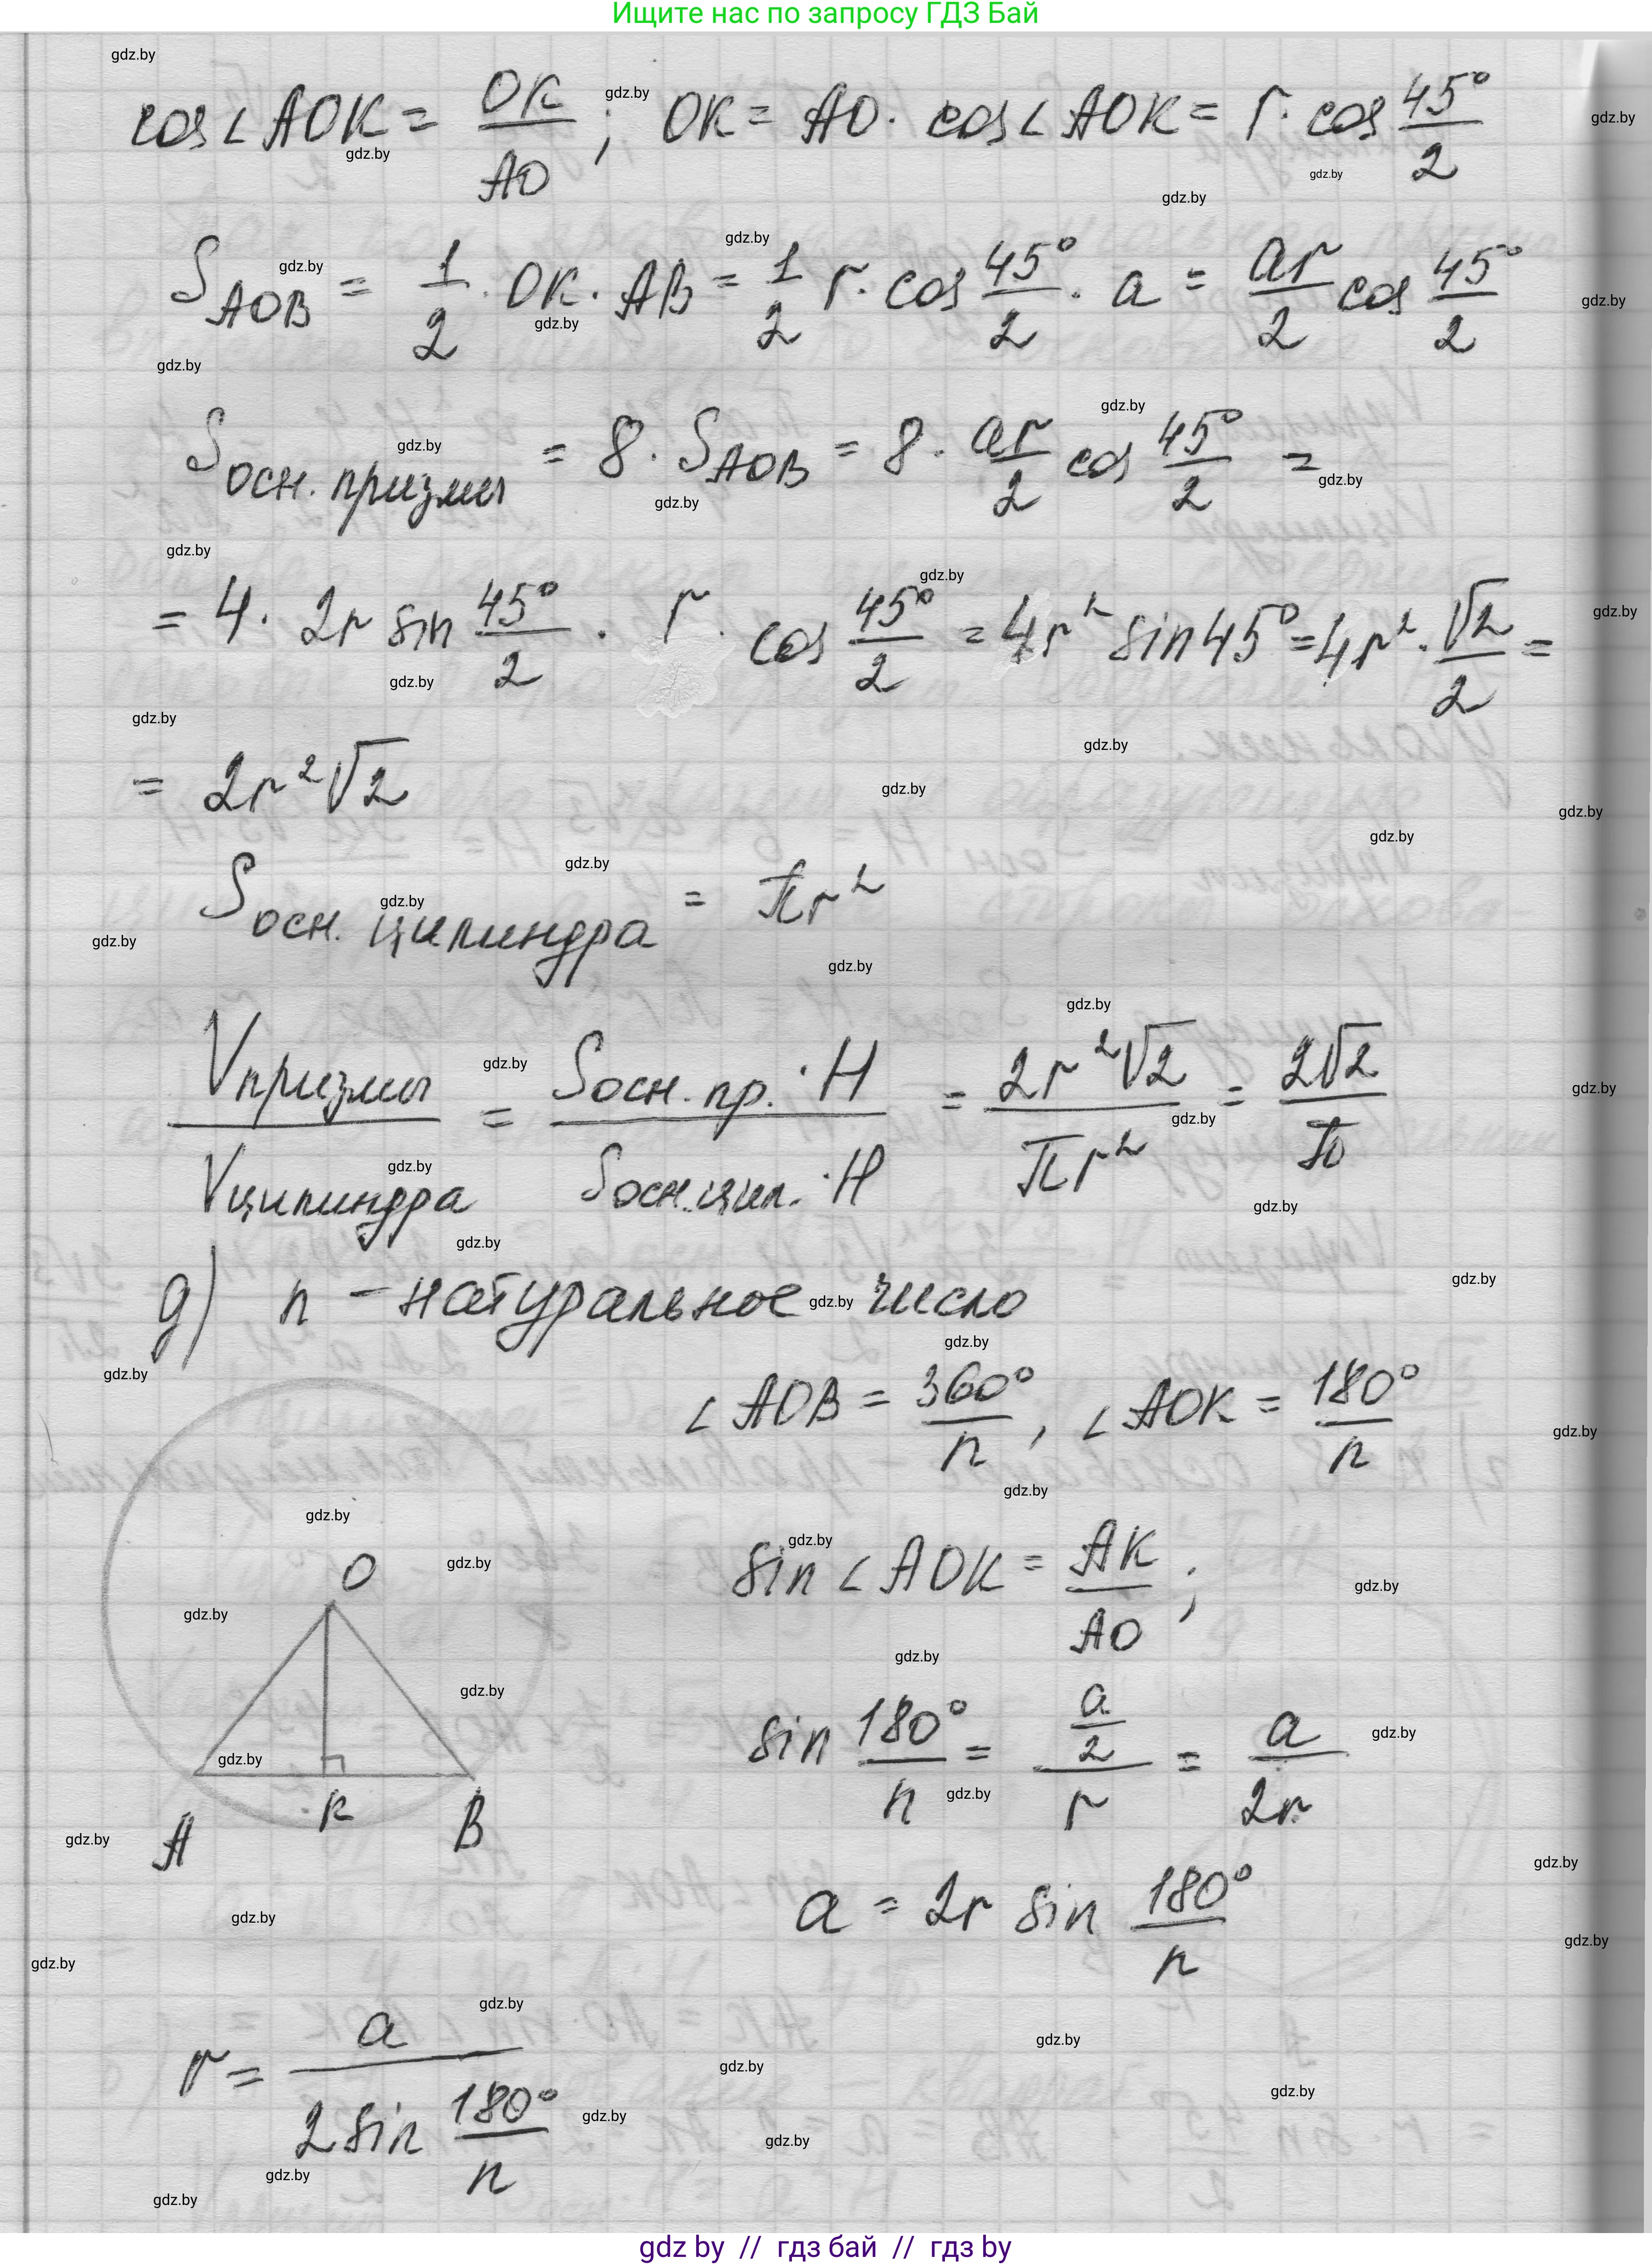 Ищите нас по запросу ГДЗ Бай
cos∠AOK = OK/AO ; OK = AO · cos∠AOK = r · cos 45°/2
S_AOB = 1/2 · OK · AB = 1/2 r · cos 45°/2 · a = ar/2 cos 45°/2
S_осн. призмы = 8 · S_AOB = 8 · ar/2 cos 45°/2 =
= 4 · 2r sin 45°/2 · r · cos 45°/2 = 4r² sin45° = 4r² · √2/2 =
= 2r²√2
S_осн. цилиндра = πr²
V_призмы/V_цилиндра = S_осн. пр. · H/S_осн. цил. · H = 2r²√2/πr² = 2√2/π
g) n – натуральное число
∠AOB = 360°/n , ∠AOK = 180°/n
sin∠AOK = AK/AO ;
O
sin 180°/n = (a/2)/r = a/2r
A K B
a = 2r sin 180°/n
r = a/(2 sin 180°/n)
gdz by // гдз бай // гдз by